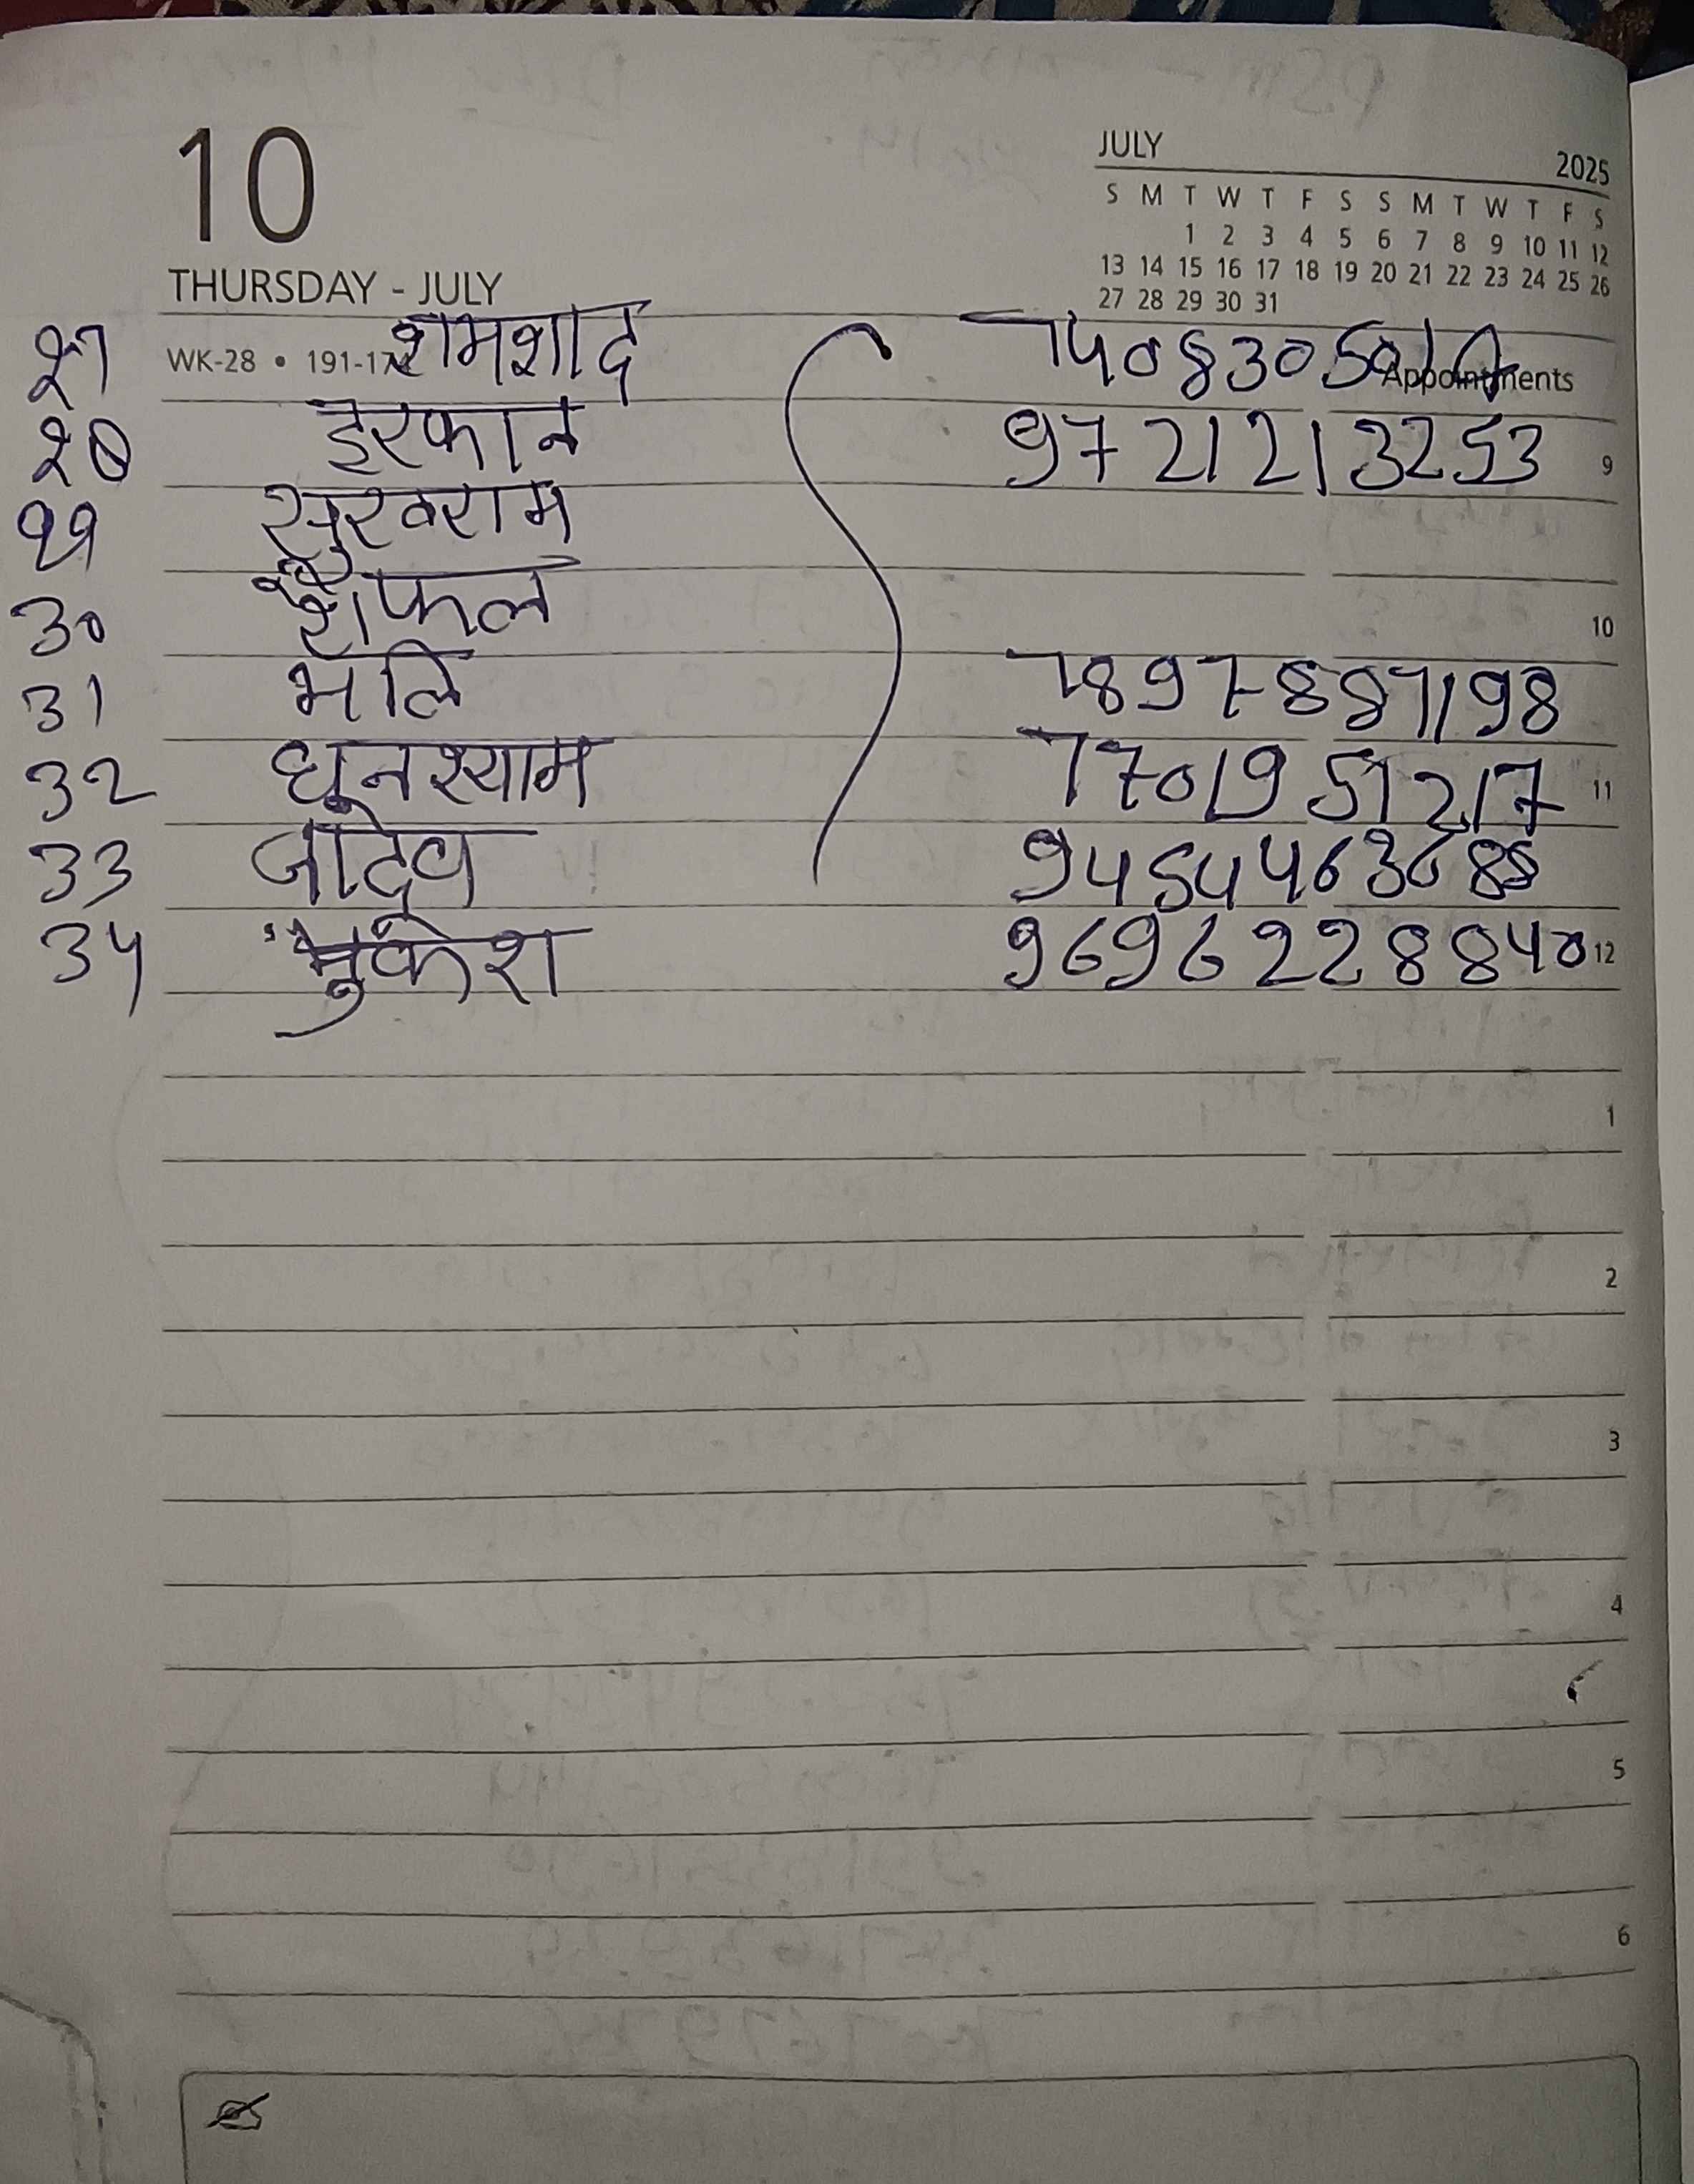 10
THURSDAY - JULY
JULY 2025
S M T W T F S S M T W T F S
1 2 3 4 5 6 7 8 9 10 11 12
13 14 15 16 17 18 19 20 21 22 23 24 25 26
27 28 29 30 31
WK-28 • 191-17
Appointments
27 शमशाद
28 इरफान 9721213253 9
29 सुखराम
30 10
31 7897887198
32 घनश्याम 7701951217 11
33 जादेव
34 मुकेश 9696228840 12
1
2
3
4
5
6